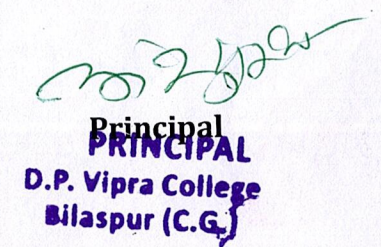 Principal
PRINCIPAL
D.P. Vipra College
Bilaspur (C.G.)